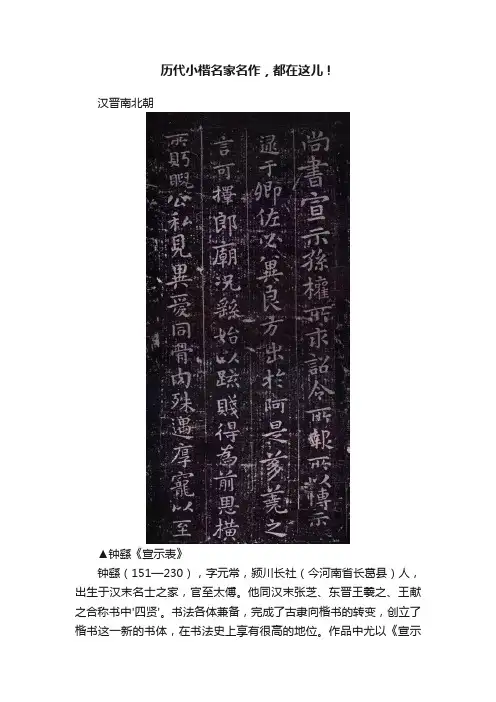 历代小楷名家名作，都在这儿！
汉晋南北朝
尚書宣示孫權所求詔令所報所以博示
逮于卿佐必冀良方出於阿是芻蕘之
言可擇郎廟況繇始以疏賤得為前恩橫
所眄睨公私見異愛同骨肉殊遇厚寵以至
▲钟繇《宣示表》
钟繇（151—230），字元常，颍川长社（今河南省长葛县）人，
出生于汉末名士之家，官至太傅。他同汉末张芝、东晋王羲之、王献
之合称书中'四贤'。书法各体兼备，完成了古隶向楷书的转变，创立了
楷书这一新的书体，在书法史上享有很高的地位。作品中尤以《宣示